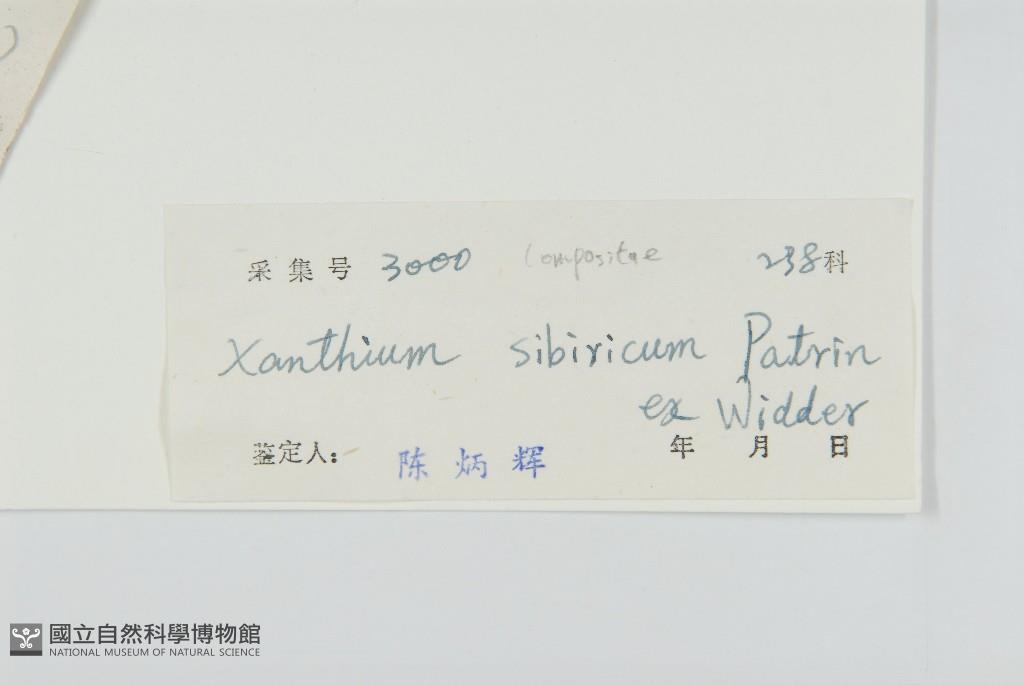 采集号 3000 Compositae 238科
Xanthium sibiricum Patrin
ex Widder
鉴定人: 陈炳辉 年 月 日
國立自然科學博物館
NATIONAL MUSEUM OF NATURAL SCIENCE